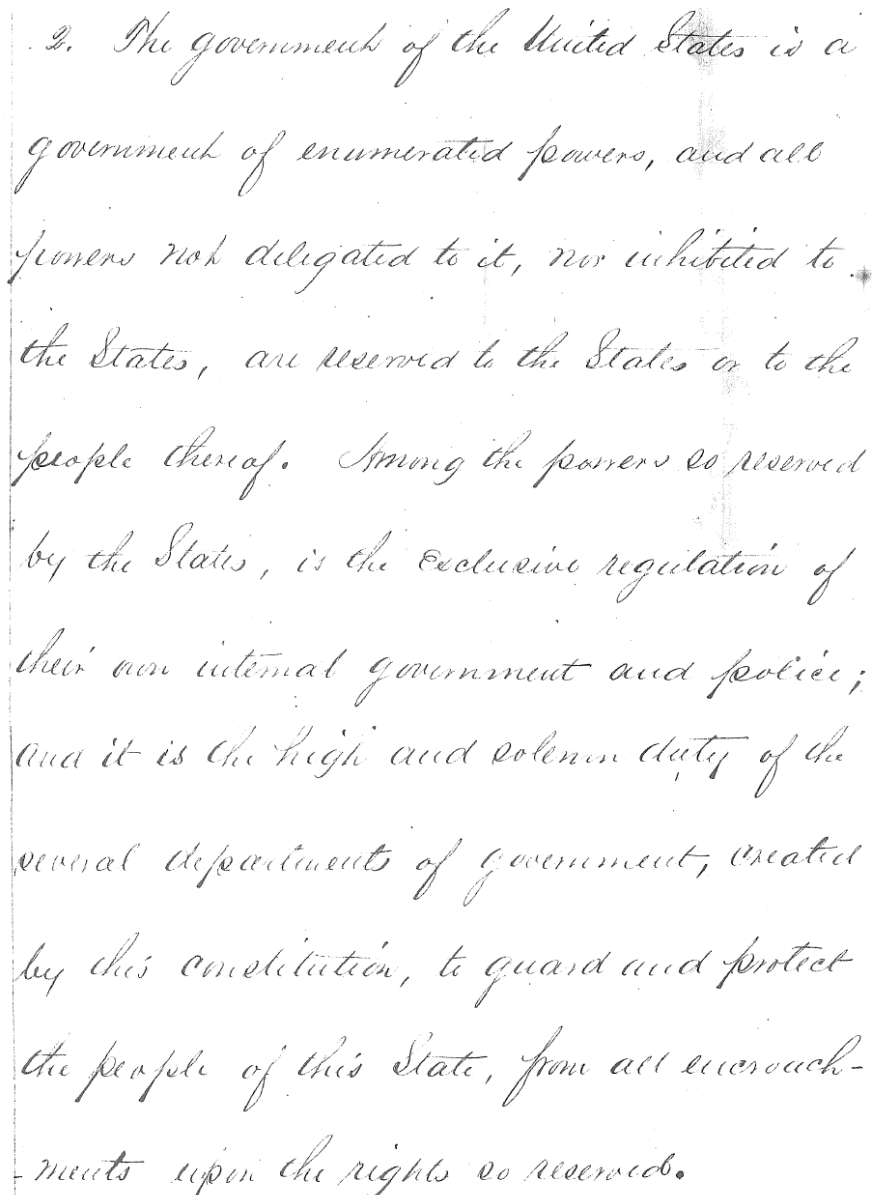 2. The government of the United States is a
government of enumerated powers, and all
powers not delegated to it, nor inhibited to
the States, are reserved to the States or to the
people thereof. Among the powers so reserved
by the States, is the exclusive regulation of
their own internal government and police;
and it is the high and solemn duty of the
several departments of government, created
by this constitution, to guard and protect
the people of this State, from all encroach-
-ments upon the rights so reserved.